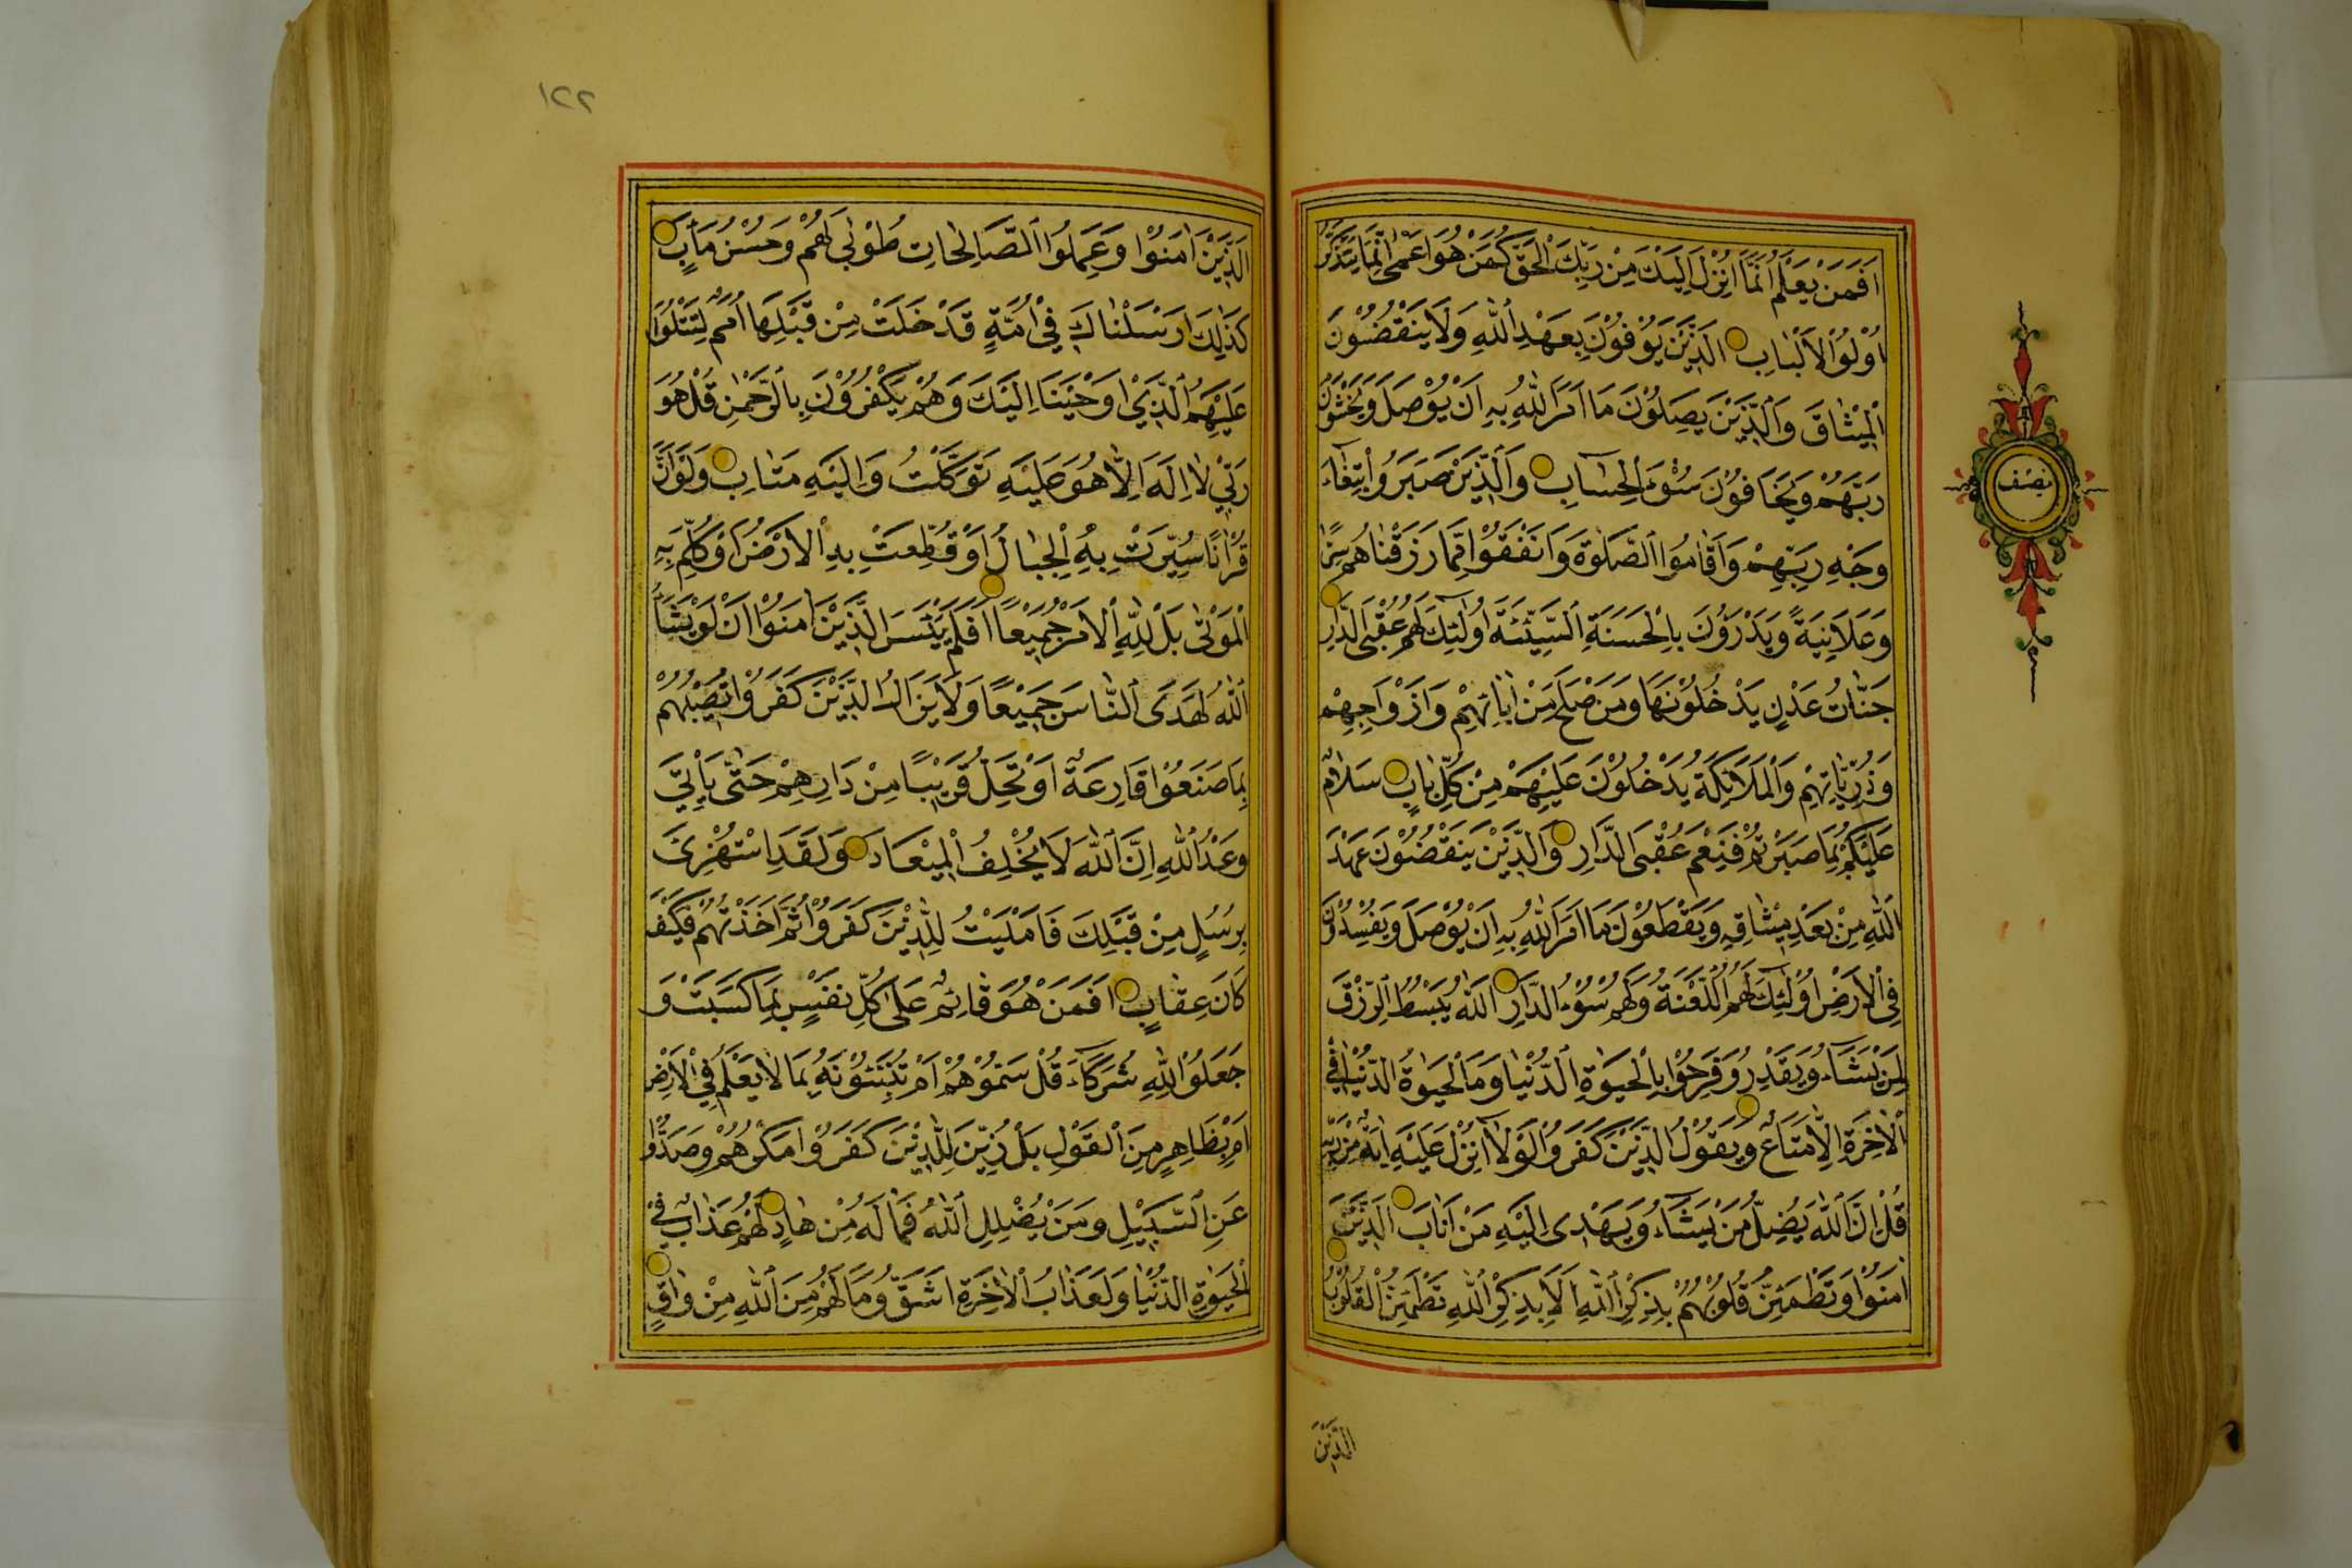 اَفَمَنْ يَعْلَمُ اَنَّمَا اُنْزِلَ اِلَيْكَ مِنْ رَبِّكَ الْحَقُّ كَمَنْ هُوَ اَعْمٰى اِنَّمَا يَتَذَكَّرُ
اُولُوا الْاَلْبَابِ الَّذِينَ يُوفُونَ بِعَهْدِ اللّٰهِ وَلَا يَنْقُضُونَ
الْمِيثَاقَ وَالَّذِينَ يَصِلُونَ مَا اَمَرَ اللّٰهُ بِهِ اَنْ يُوصَلَ وَيَخْشَوْنَ
رَبَّهُمْ وَيَخَافُونَ سُوءَ الْحِسَابِ وَالَّذِينَ صَبَرُوا ابْتِغَاءَ
وَجْهِ رَبِّهِمْ وَاَقَامُوا الصَّلٰوةَ وَاَنْفَقُوا مِمَّا رَزَقْنَاهُمْ سِرًّا
وَعَلَانِيَةً وَيَدْرَؤُنَ بِالْحَسَنَةِ السَّيِّئَةَ اُولٰئِكَ لَهُمْ عُقْبَى الدَّارِ
جَنَّاتُ عَدْنٍ يَدْخُلُونَهَا وَمَنْ صَلَحَ مِنْ اٰبَائِهِمْ وَاَزْوَاجِهِمْ
وَذُرِّيَّاتِهِمْ وَالْمَلَائِكَةُ يَدْخُلُونَ عَلَيْهِمْ مِنْ كُلِّ بَابٍ سَلَامٌ
عَلَيْكُمْ بِمَا صَبَرْتُمْ فَنِعْمَ عُقْبَى الدَّارِ وَالَّذِينَ يَنْقُضُونَ عَهْدَ
اللّٰهِ مِنْ بَعْدِ مِيثَاقِهِ وَيَقْطَعُونَ مَا اَمَرَ اللّٰهُ بِهِ اَنْ يُوصَلَ وَيُفْسِدُونَ
فِي الْاَرْضِ اُولٰئِكَ لَهُمُ اللَّعْنَةُ وَلَهُمْ سُوءُ الدَّارِ اَللّٰهُ يَبْسُطُ الرِّزْقَ
لِمَنْ يَشَاءُ وَيَقْدِرُ وَفَرِحُوا بِالْحَيٰوةِ الدُّنْيَا وَمَا الْحَيٰوةُ الدُّنْيَا فِي
الْاٰخِرَةِ اِلَّا مَتَاعٌ وَيَقُولُ الَّذِينَ كَفَرُوا لَوْلَا اُنْزِلَ عَلَيْهِ اٰيَةٌ مِنْ رَبِّهِ
قُلْ اِنَّ اللّٰهَ يُضِلُّ مَنْ يَشَاءُ وَيَهْدِى اِلَيْهِ مَنْ اَنَابَ الَّذِينَ
اٰمَنُوا وَتَطْمَئِنُّ قُلُوبُهُمْ بِذِكْرِ اللّٰهِ اَلَا بِذِكْرِ اللّٰهِ تَطْمَئِنُّ الْقُلُوبُ
الَّذِينَ
نصف
١٢٢
الَّذِينَ اٰمَنُوا وَعَمِلُوا الصَّالِحَاتِ طُوبٰى لَهُمْ وَحُسْنُ مَاٰبٍ
كَذٰلِكَ اَرْسَلْنَاكَ فِي اُمَّةٍ قَدْ خَلَتْ مِنْ قَبْلِهَا اُمَمٌ لِتَتْلُوَا
عَلَيْهِمُ الَّذِي اَوْحَيْنَا اِلَيْكَ وَهُمْ يَكْفُرُونَ بِالرَّحْمٰنِ قُلْ هُوَ
رَبِّي لَا اِلٰهَ اِلَّا هُوَ عَلَيْهِ تَوَكَّلْتُ وَاِلَيْهِ مَتَابِ وَلَوْ اَنَّ
قُرْاٰنًا سُيِّرَتْ بِهِ الْجِبَالُ اَوْ قُطِّعَتْ بِهِ الْاَرْضُ اَوْ كُلِّمَ بِهِ
الْمَوْتٰى بَلْ لِلّٰهِ الْاَمْرُ جَمِيعًا اَفَلَمْ يَيْئَسِ الَّذِينَ اٰمَنُوا اَنْ لَوْ يَشَاءُ
اللّٰهُ لَهَدَى النَّاسَ جَمِيعًا وَلَا يَزَالُ الَّذِينَ كَفَرُوا تُصِيبُهُمْ
بِمَا صَنَعُوا قَارِعَةٌ اَوْ تَحُلُّ قَرِيبًا مِنْ دَارِهِمْ حَتّٰى يَأْتِيَ
وَعْدُ اللّٰهِ اِنَّ اللّٰهَ لَا يُخْلِفُ الْمِيعَادَ وَلَقَدِ اسْتُهْزِئَ
بِرُسُلٍ مِنْ قَبْلِكَ فَاَمْلَيْتُ لِلَّذِينَ كَفَرُوا ثُمَّ اَخَذْتُهُمْ فَكَيْفَ
كَانَ عِقَابِ اَفَمَنْ هُوَ قَائِمٌ عَلٰى كُلِّ نَفْسٍ بِمَا كَسَبَتْ وَ
جَعَلُوا لِلّٰهِ شُرَكَاءَ قُلْ سَمُّوهُمْ اَمْ تُنَبِّئُونَهُ بِمَا لَا يَعْلَمُ فِي الْاَرْضِ
اَمْ بِظَاهِرٍ مِنَ الْقَوْلِ بَلْ زُيِّنَ لِلَّذِينَ كَفَرُوا مَكْرُهُمْ وَصَدُّوا
عَنِ السَّبِيلِ وَمَنْ يُضْلِلِ اللّٰهُ فَمَا لَهُ مِنْ هَادٍ لَهُمْ عَذَابٌ فِي
الْحَيٰوةِ الدُّنْيَا وَلَعَذَابُ الْاٰخِرَةِ اَشَقُّ وَمَا لَهُمْ مِنَ اللّٰهِ مِنْ وَاقٍ